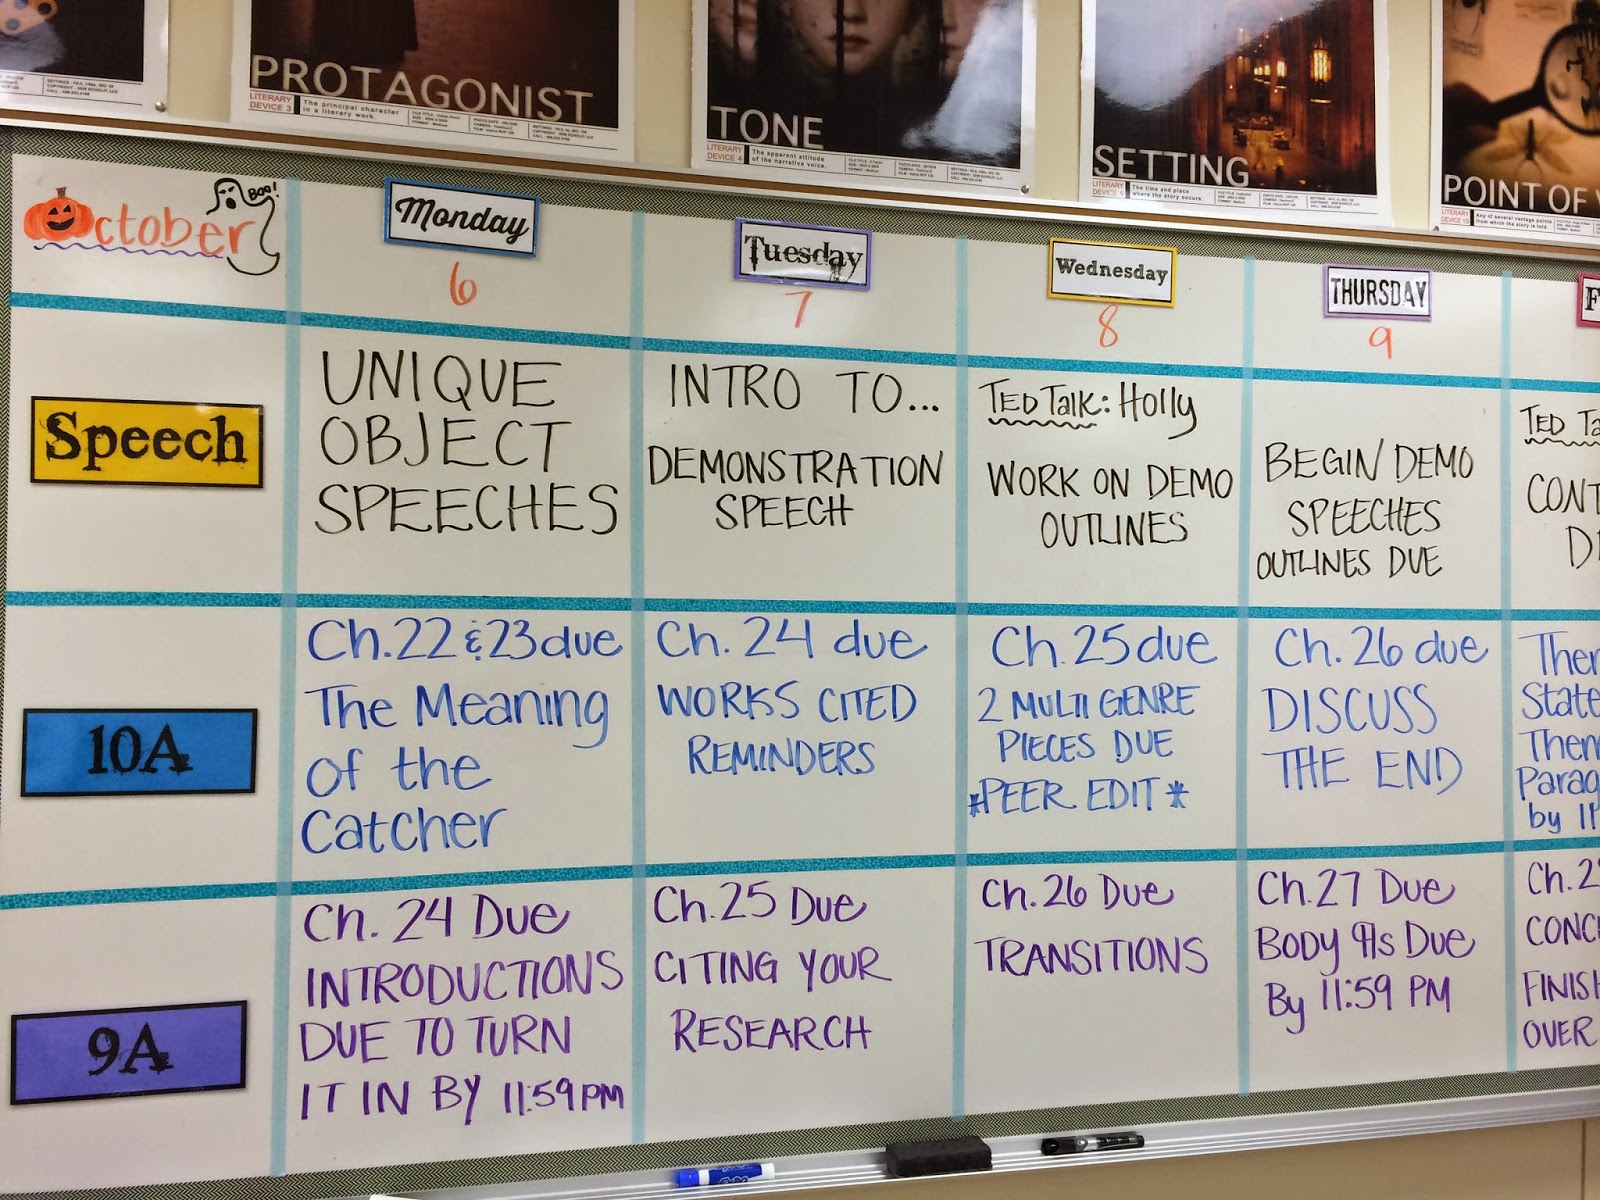 PROTAGONIST
LITERARY DEVICE 3
The principal character
in a literary work
TONE
LITERARY DEVICE 4
The apparent attitude
of the narrative voice.
SETTING
LITERARY
The time and place
where the story occurs.
POINT OF
LITERARY DEVICE 10
Any of several vantage points
from which the story is told.
October
BOO!
Monday
Tuesday
Wednesday
THURSDAY
F
6
7
8
9
Speech
UNIQUE
OBJECT
SPEECHES
INTRO TO...
DEMONSTRATION
SPEECH
TED Talk: Holly
WORK ON DEMO
OUTLINES
BEGIN DEMO
SPEECHES
OUTLINES DUE
TED Ta
CONT
D
10A
Ch. 22 & 23 due
The Meaning
of the
Catcher
Ch. 24 due
WORKS CITED
REMINDERS
Ch. 25 due
2 MULTI GENRE
PIECES DUE
*PEER EDIT*
Ch. 26 due
DISCUSS
THE END
Them
State
Them
Parag
by 11
9A
Ch. 24 Due
INTRODUCTIONS
DUE TO TURN
IT IN BY 11:59 PM
Ch. 25 Due
CITING YOUR
RESEARCH
Ch. 26 Due
TRANSITIONS
Ch. 27 Due
BODY ¶s Due
By 11:59 PM
Ch. 2
CONC
FINISH
OVER